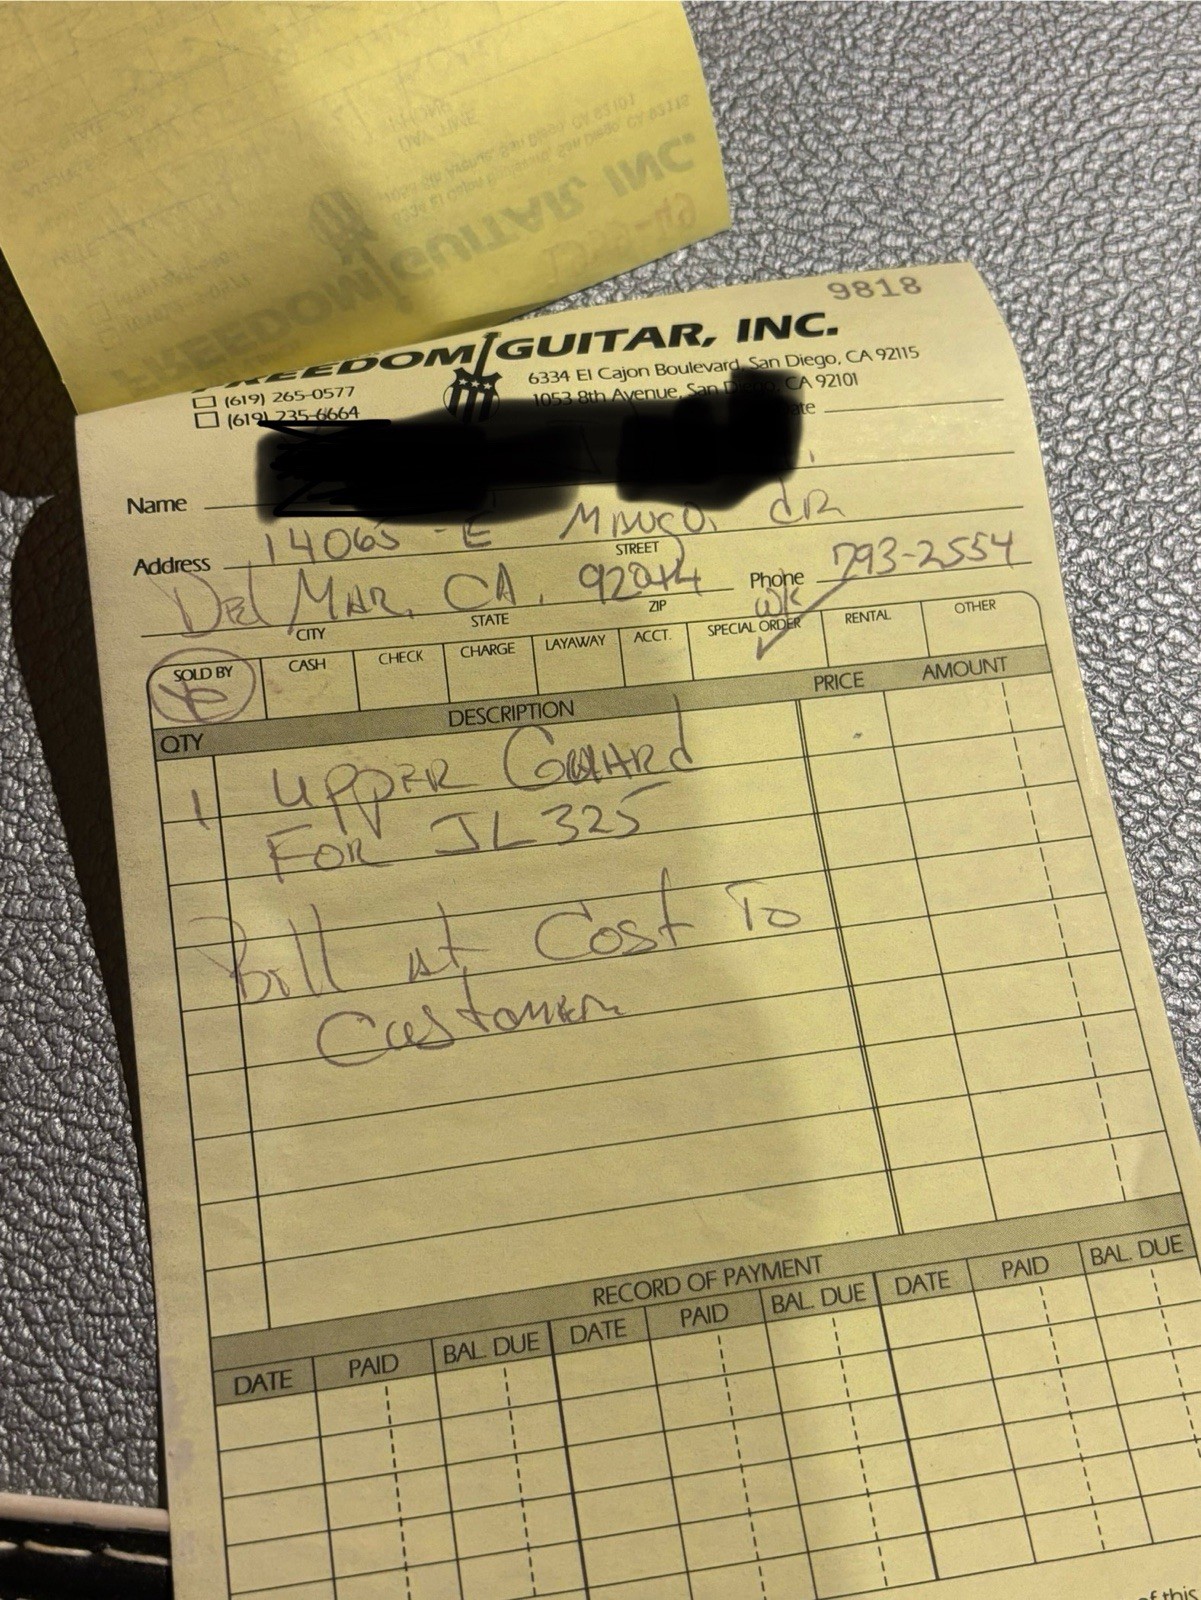 9818
FREEDOM GUITAR, INC.
(619) 265-0577
(619) 235-6664
6334 El Cajon Boulevard, San Diego, CA 92115
1053 8th Avenue, San Diego, CA 92101
Name
Address 14065-E DR
STREET
Del MAR, CA. Phone 793-2554
CITY STATE ZIP wk
SOLD BY CASH CHECK CHARGE LAYAWAY ACCT. SPECIAL ORDER RENTAL OTHER
QTY DESCRIPTION PRICE AMOUNT
1 UPPER GUARD
FOR JL325
Bill at Cost To
Customer
RECORD OF PAYMENT
DATE PAID BAL. DUE DATE PAID BAL. DUE DATE PAID BAL. DUE
of this